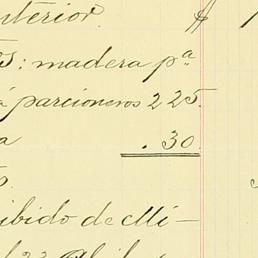 nterior. $ 1
os: madera pª
á parcioneros 225.
a . 30.
5.
ibido de Mi-